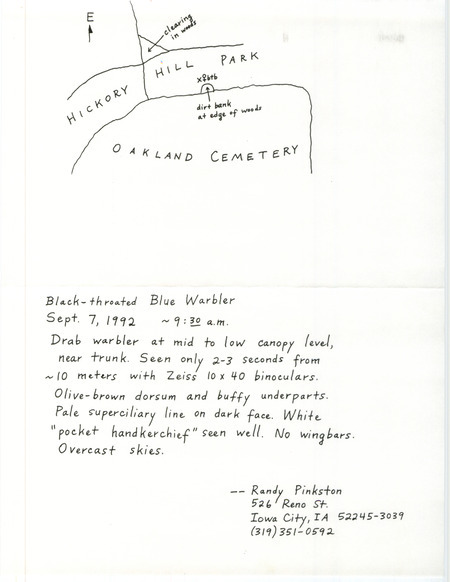 E
clearing
in woods
HICKORY HILL PARK
dirt bank
at edge of woods
OAKLAND CEMETERY
Black-throated Blue Warbler
Sept. 7, 1992 ~ 9:30 a.m.
Drab warbler at mid to low canopy level,
near trunk. Seen only 2-3 seconds from
~10 meters with Zeiss 10 x 40 binoculars.
Olive-brown dorsum and buffy underparts.
Pale superciliary line on dark face. White
"pocket handkerchief" seen well. No wingbars.
Overcast skies.
-- Randy Pinkston
526 Reno St.
Iowa City, IA 52245-3039
(319) 351-0592